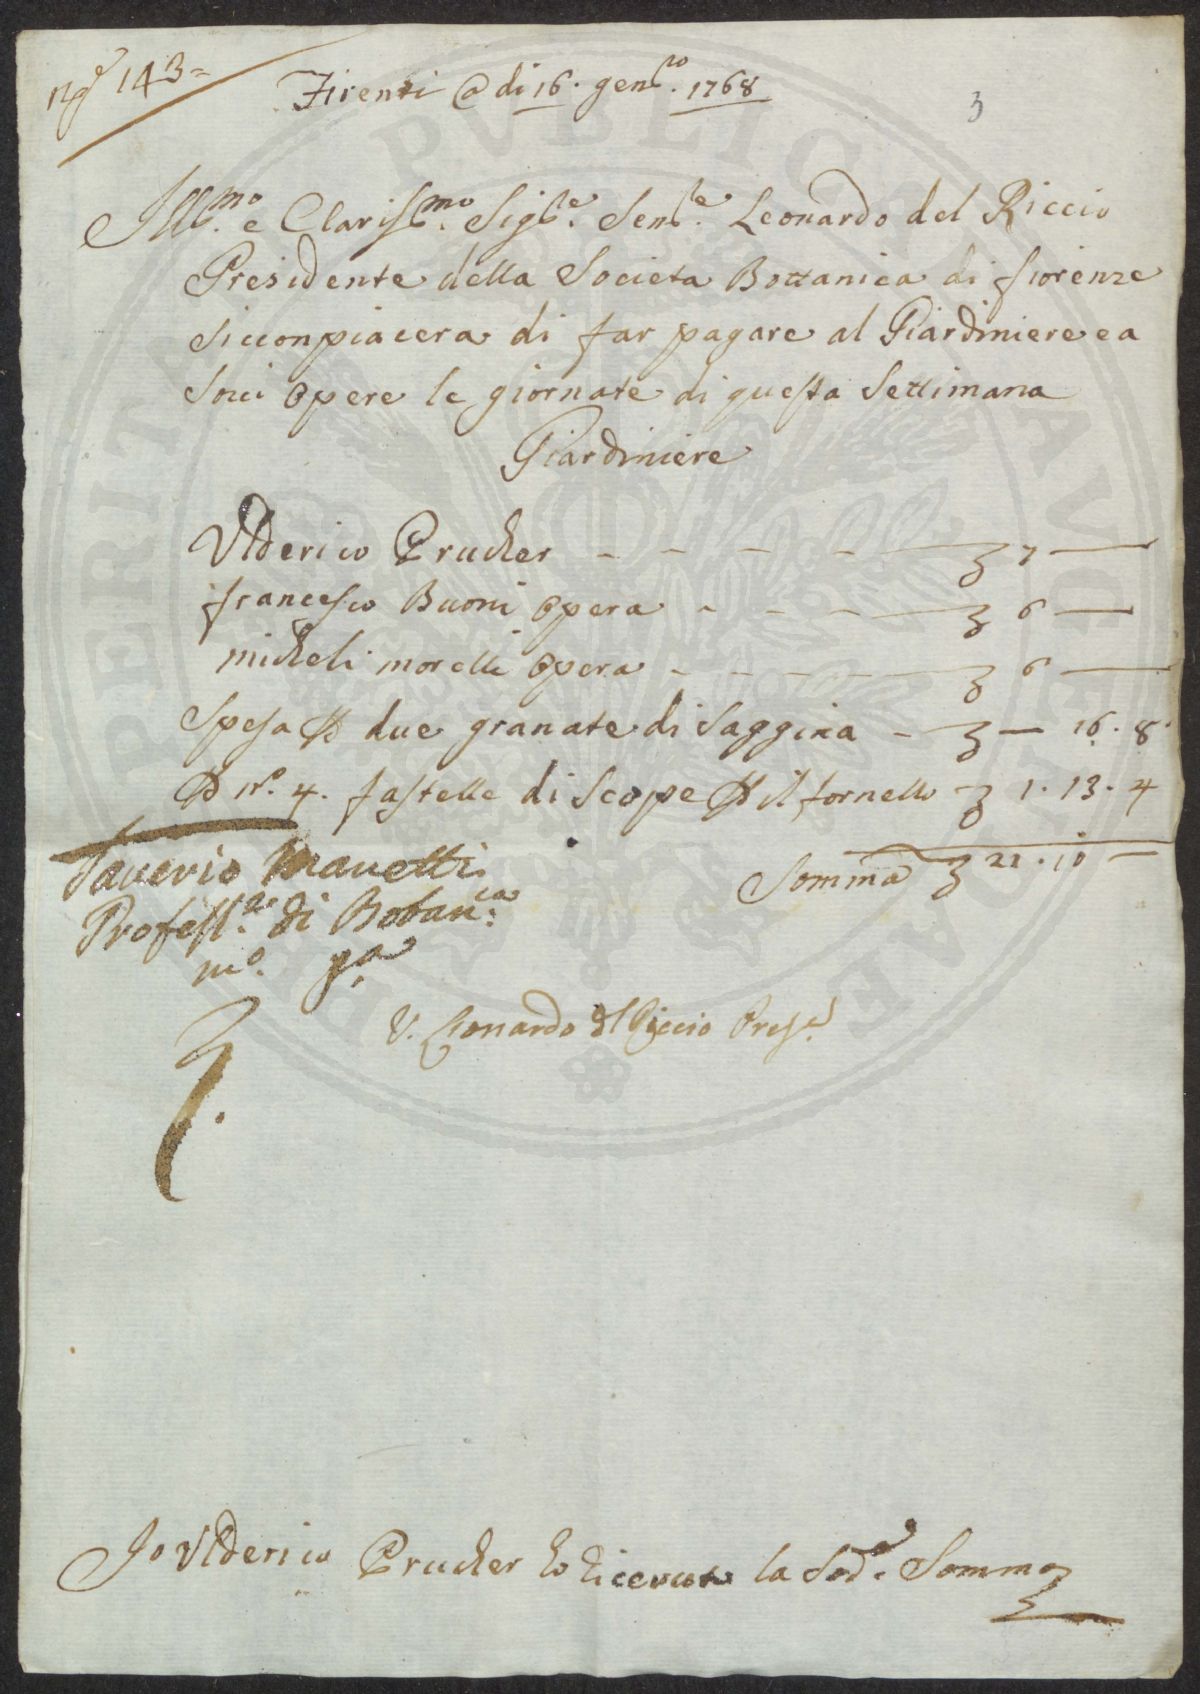 n.º 143=
Firenzi @ di 16. gen.ro 1768
3
Ill.mo e Clariss.mo Sig.re Sen.re Leonardo del Riccio
Presidente della Societa Bottanica di fiorenze
Si conpiacera di far pagare al Giardiniere e a
Soui Opere le giornate di questa Settimana
Giardiniere
Vlderico Prucher - - - - 7 —
francesco Buoni opera - - - 6 —
micheli morelli opera - - - - 6 —
Spesa P due granate di Saggina - — 16. 8
P n.o 4. fastelle di Scope P il fornello - 1. 13. 4
Somma 21. 10 —
Saverio Manetti
Profess.re di Botan.ca
m.o p.a
V. Leonardo del Riccio Pres.e
Io Vlderico Prucher ho Ricevuto la Sod.a Somma